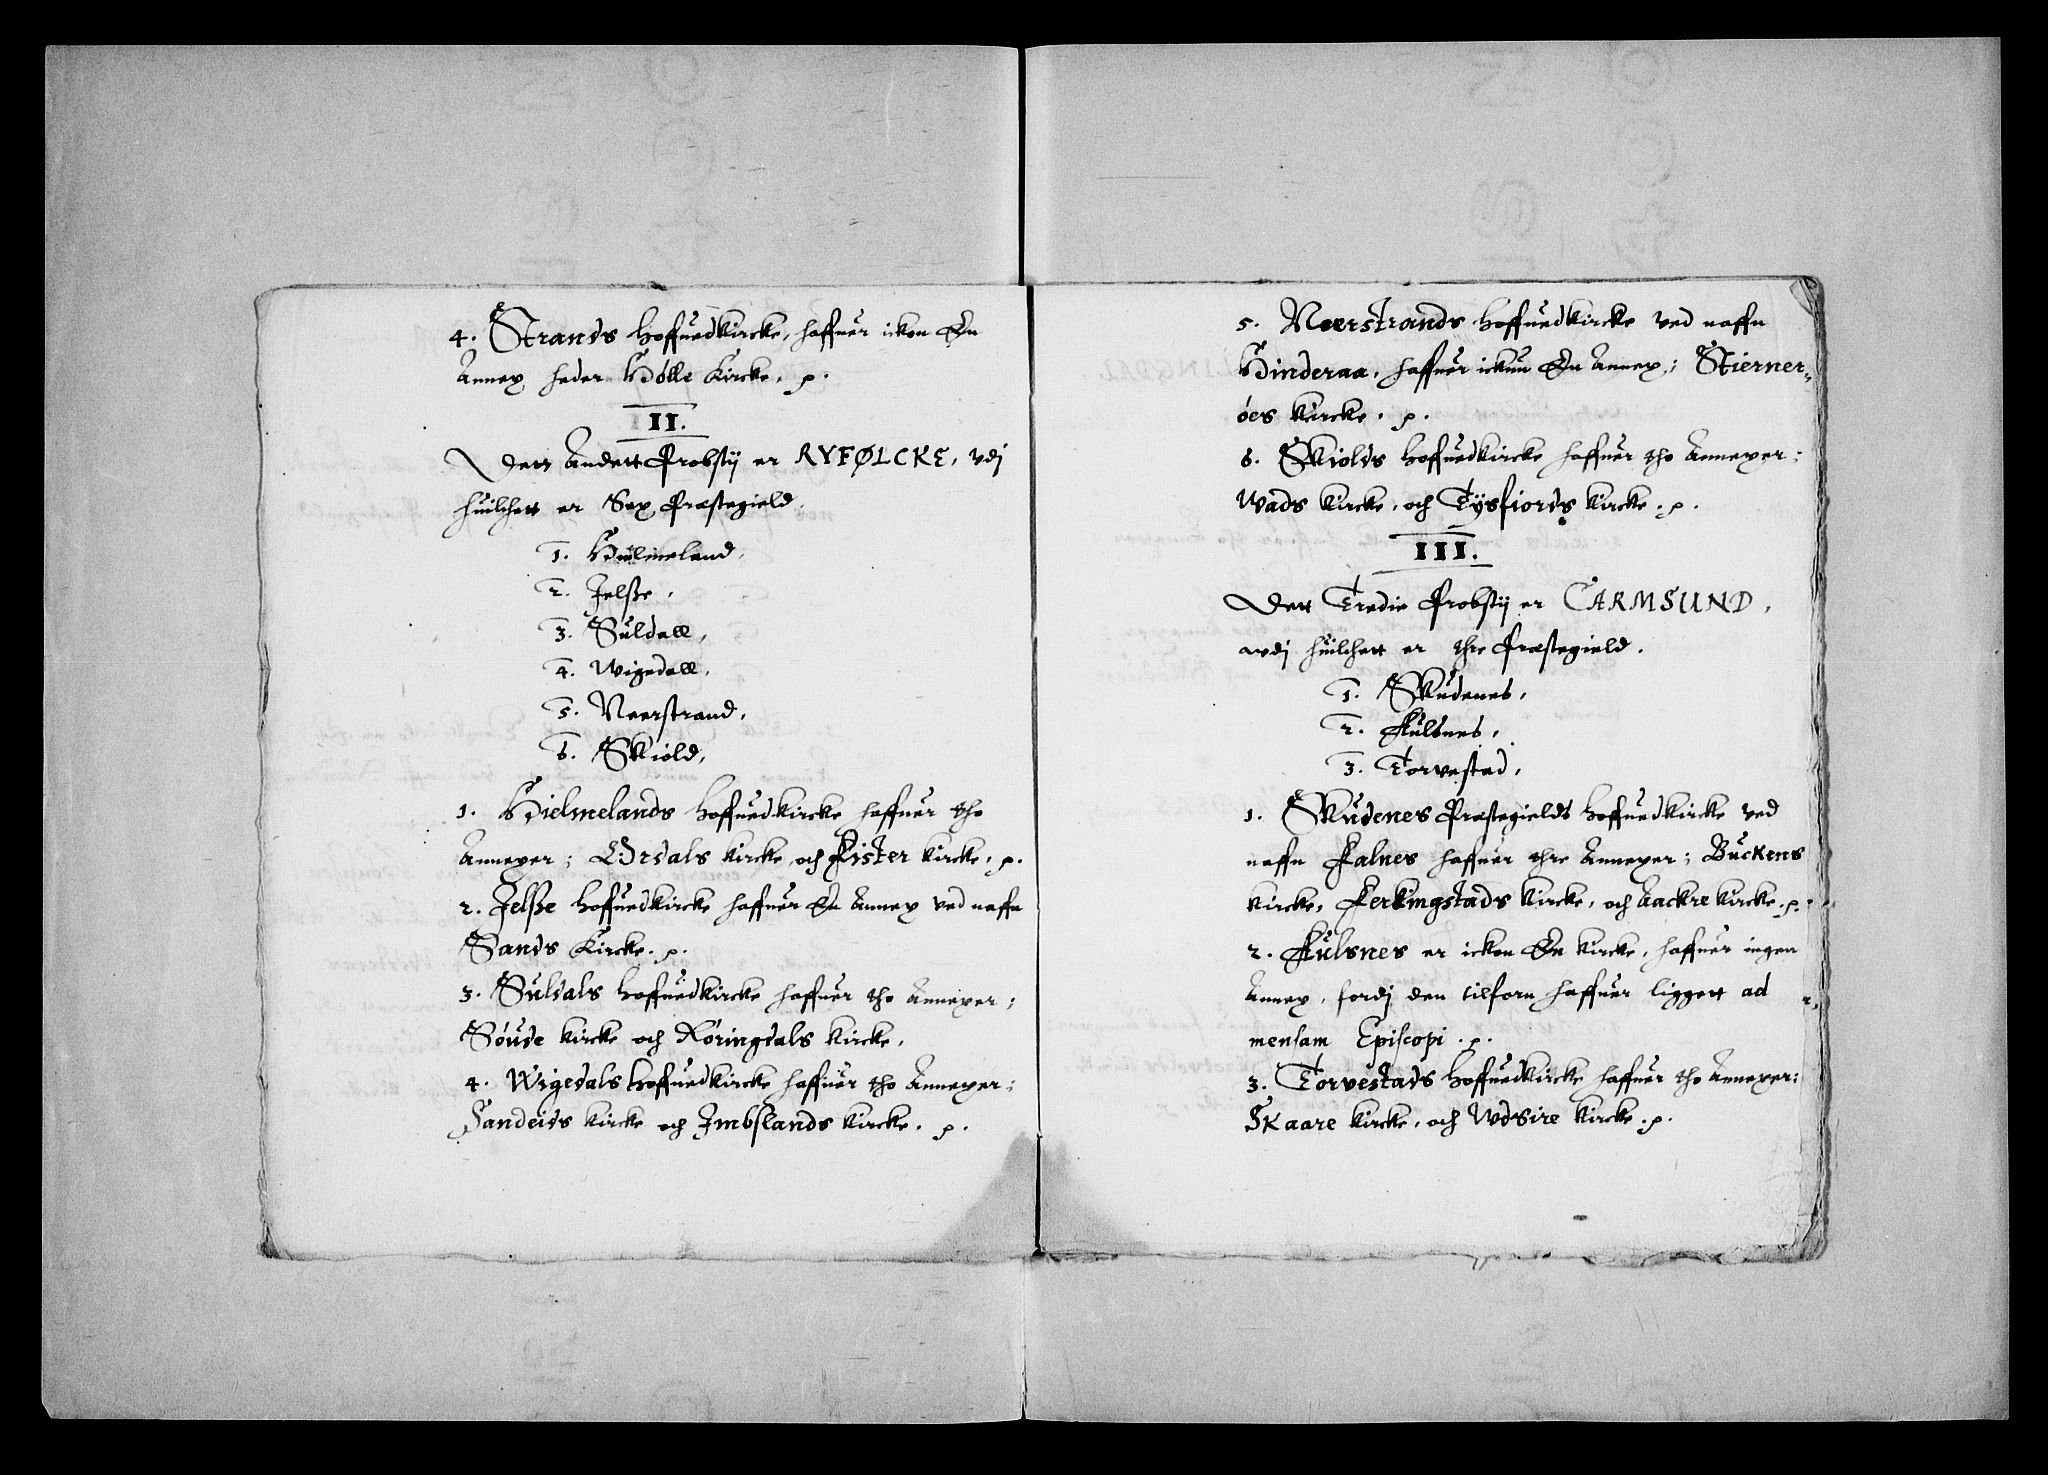 4. Strands Hoffuedkircke, haffuer icken En
Annex heder Hølle Kircke. p.
II.
Dett Andett Probstij er RYFØLCKE, vdj
huilchett er Sex Præstegield.
1. Hielmeland,
2. Jelsße,
3. Suldall,
4. Wigedall,
5. Neerstrand,
6. Skiold,
1. Hielmelands Hoffuedkircke haffuer tho
Annexer; Ørdals kircke och Fister kircke. p.
2. Jelße Hoffuedkircke haffuer En Annex ved naffn
Sands Kircke. p.
3. Suldals Hoffuedkircke haffuer tho Annexer;
Søude kircke och Røringdals kircke,
4. Wigedals Hoffuedkircke haffuer tho Annexer;
Sandeids kircke och Imbslands kircke. p.
5. Neerstrands Hoffuedkircke ved naffn
Hinderaa, haffuer ickun En Annex; Stierner-
øes kircke. p.
6. Skiolds Hoffuedkircke haffuer tho Annexer;
Wads kircke, och Tysfiords kircke. p.
III.
Dett Tredie Probstij er CARMSUND,
vdj huilchett er thre Præstegield.
1. Skudenes,
2. Fulsnes,
3. Torvestad,
1. Skudenes Præstegields Hoffuedkircke ved
naffn Falnes haffuer thre Annexer; Buckens
kircke, Ferkingstads kircke, och Aackre kircke. p.
2. Fulsnes er icken En kircke, haffuer ingen
Annex, fordj den tilforn haffuer liggett ad
mensam Episcopi. p.
3. Torvestads Hoffuedkircke haffuer tho Annexer;
Skaare kircke, och Wdsire kircke. p.